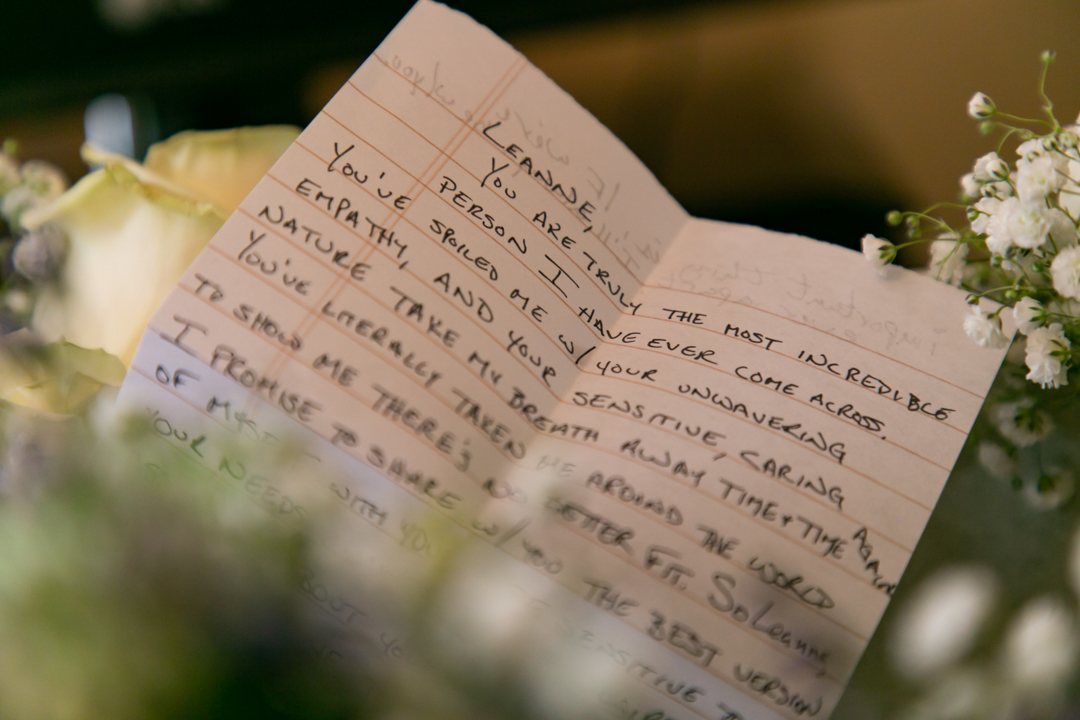 LEANNE,
YOU ARE TRULY THE MOST INCREDIBLE
PERSON I HAVE EVER COME ACROSS.
YOU'VE SPOILED ME W/ YOUR UNWAVERING
EMPATHY, AND YOUR SENSITIVE, CARING
NATURE TAKE MY BREATH AWAY TIME & TIME AGAIN
YOU'VE LITERALLY TAKEN ME AROUND THE WORLD
TO SHOW ME THERE'S NO BETTER FIT. So Leanne,
I PROMISE TO SHARE W/ YOU THE BEST VERSION
OF WITH YOU SENSITIVE TO
YOUR NEEDS